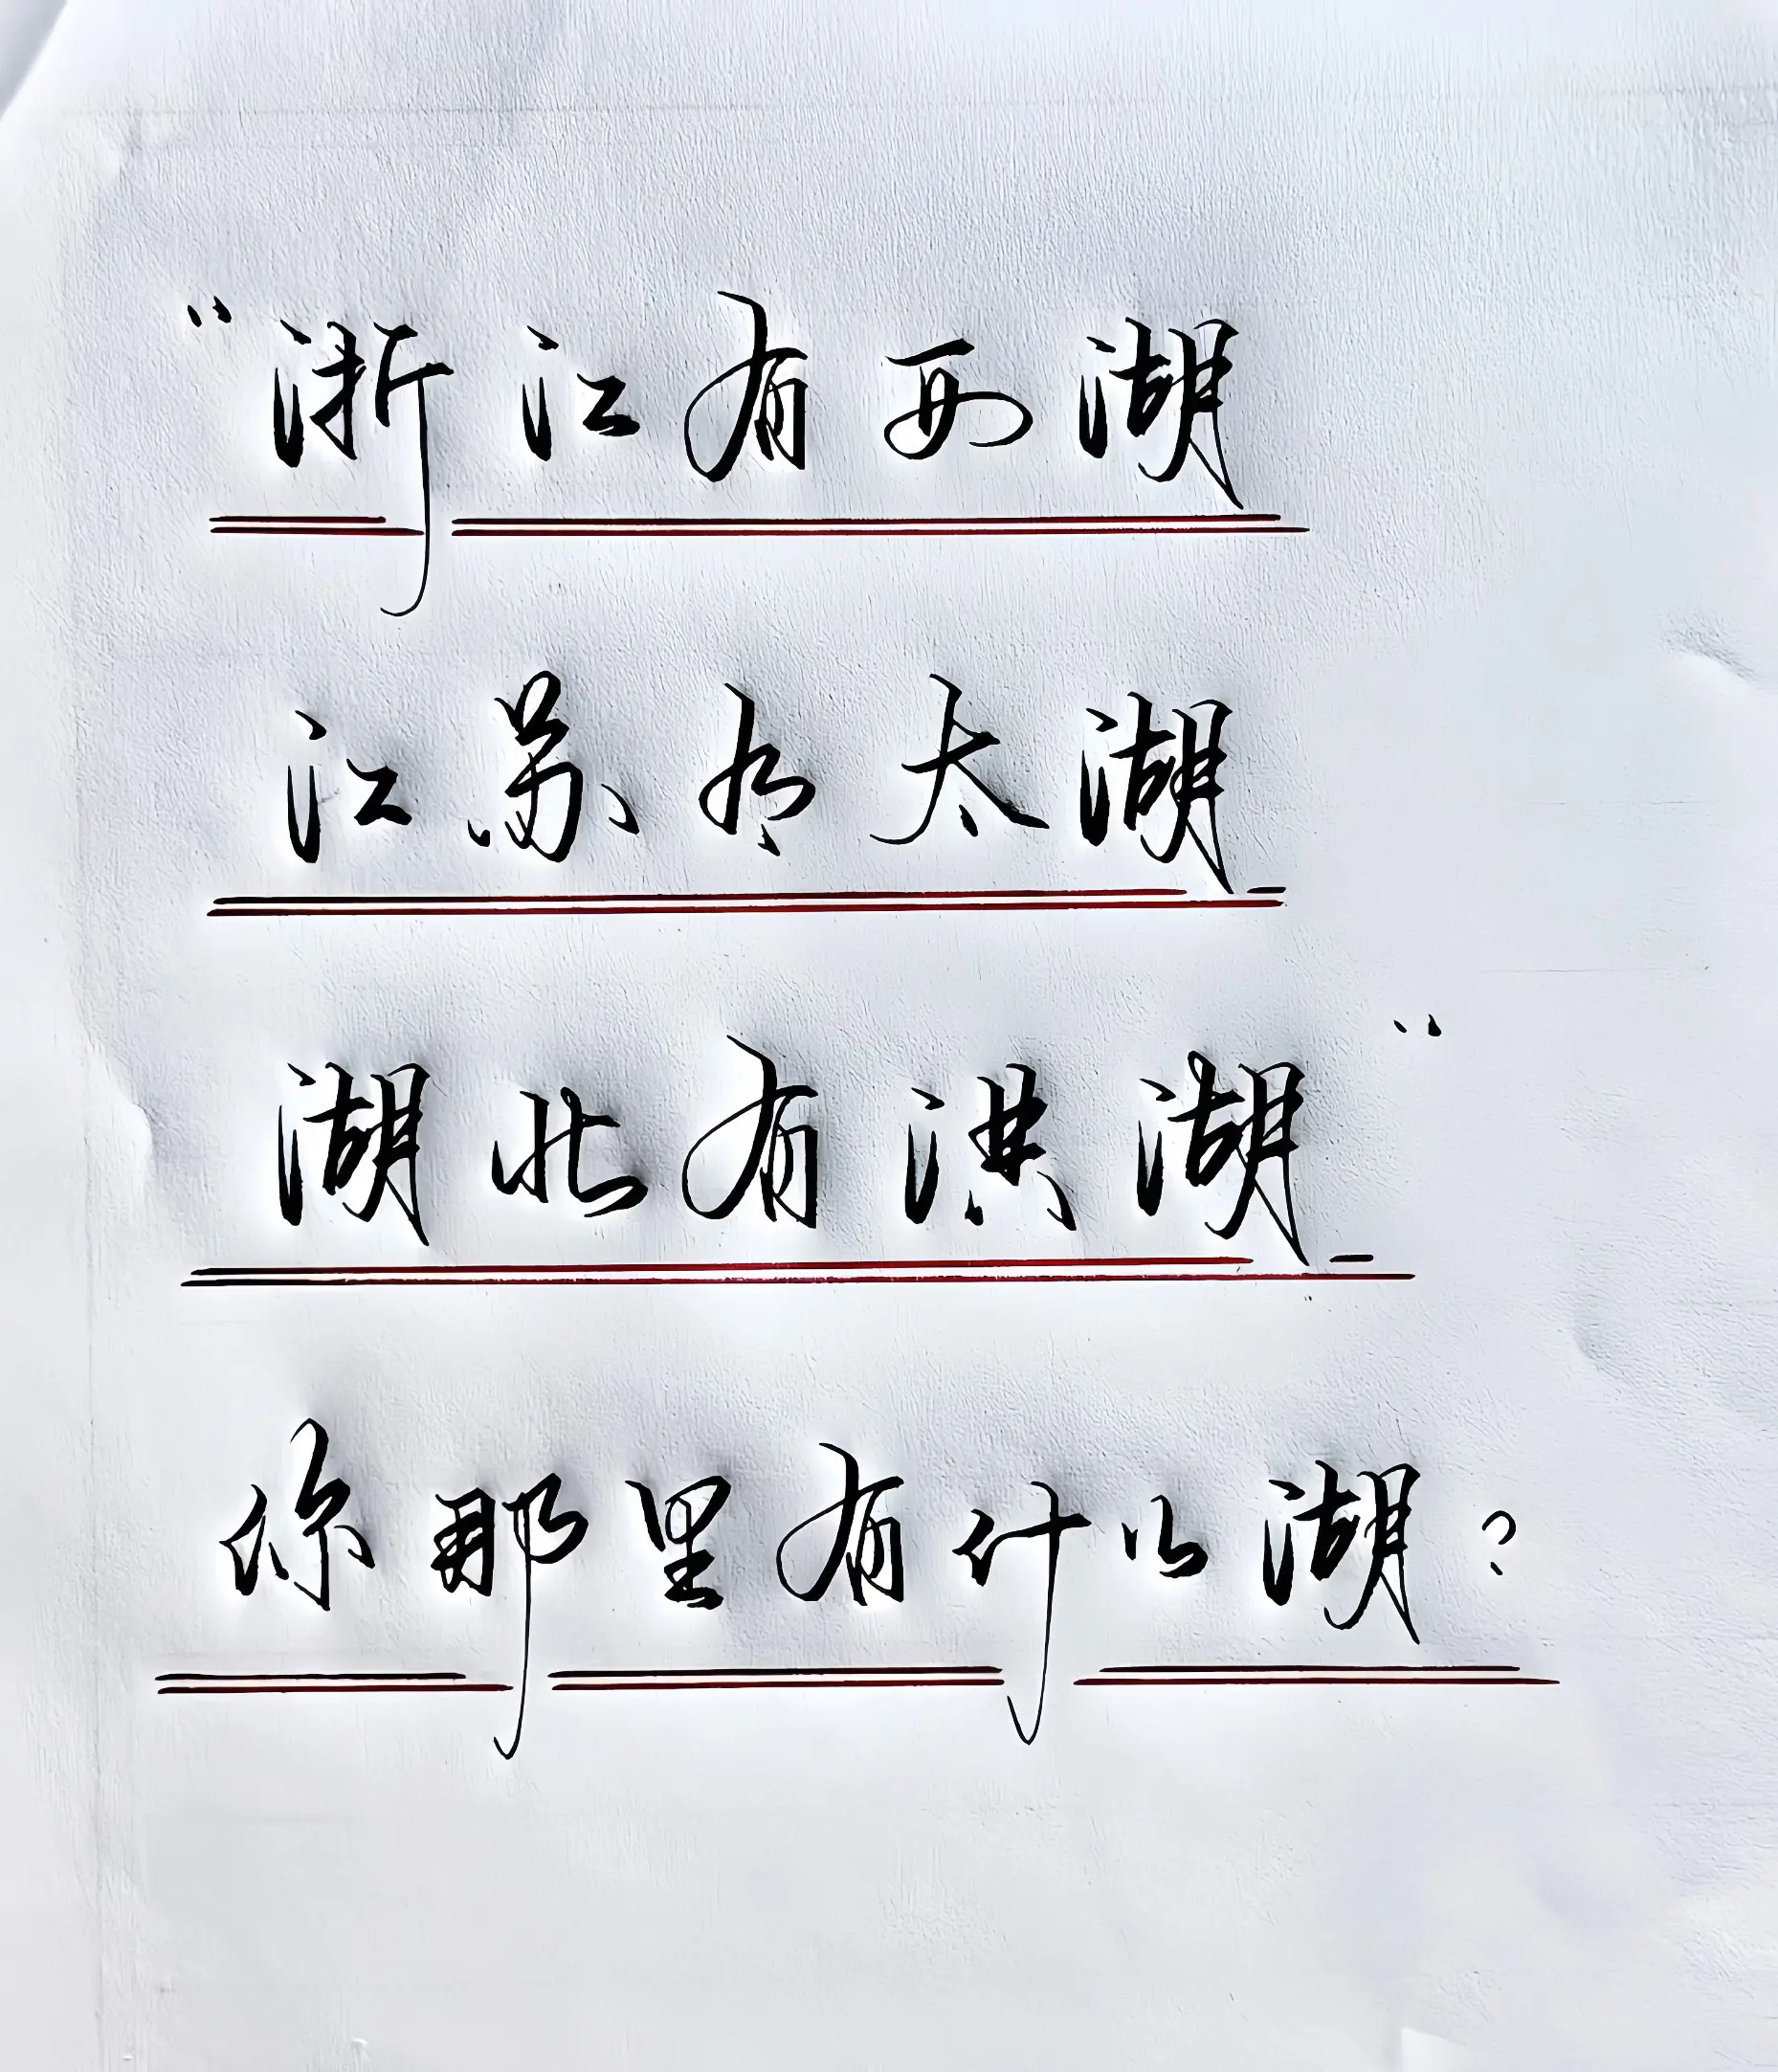 “浙江有西湖
江苏有太湖
湖北有洪湖”
你那里有什么湖？